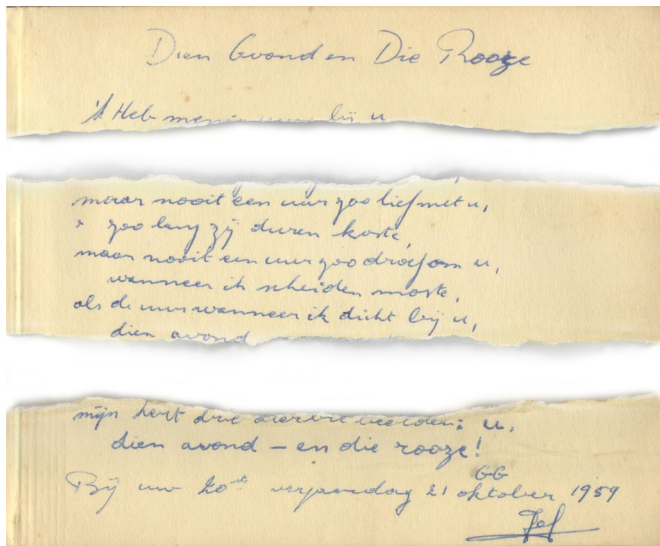 Dien Avond en Die Rooze
'k Heb menig uur bij u
maar nooit een uur zoo lief met u,
zoo lang zij duren koste,
maar nooit een uur zoo droef om u,
wanneer ik scheiden moste,
als de uur wanneer ik dicht bij u,
dien avond
mijn hert drie
dien avond – en die rooze!
Bij uw 20ste verjaardag 21 oktober 1959
GG
Jef